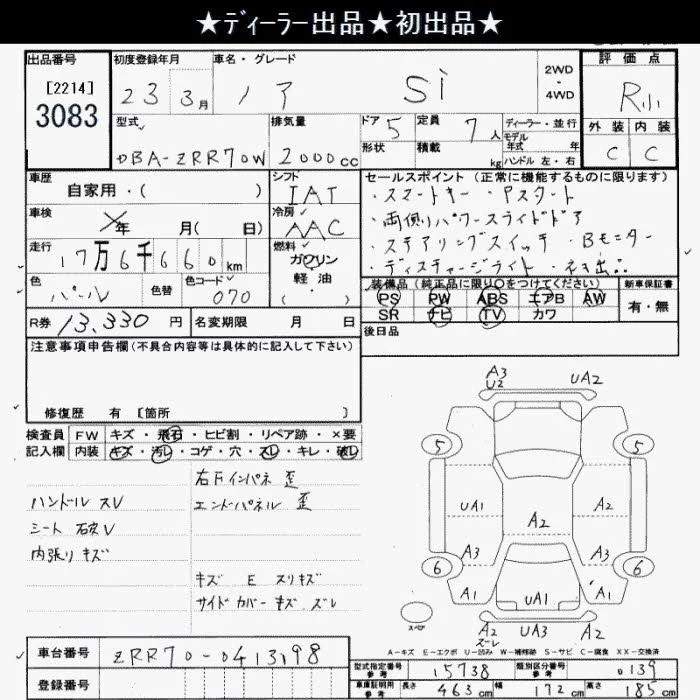 ★ディーラー出品★初出品★
出品番号 初度登録年月 車名・グレード 評価点
[2214] 3083 23 3月 ノア Si 2WD・4WD R
外装 内装
C C
型式 排気量 ドア 定員 ディーラー・並行
DBA-ZRR70W 2000cc 5 7人 モデル年式 年
形状 積載 kg ハンドル 左・右
車歴 シフト セールスポイント (正常に機能するものに限ります)
自家用・( ) IAT ・スマートキー ・Pスタート
車検 冷房 ・両側パワースライドドア
年 月( 日) AAC ・ステアリングスイッチ ・Bモニター
走行 燃料 ・ディスチャージライト
17万6千660km ガソリン
色 色替 色コード 軽油
パール 070 ( )
装備品 (純正品に限り○をつけてください) 新車保証書
PS PW ABS エアB AW 有・無
SR ナビ TV カワ
R券 13,330円 名変期限 月 日
後日品
注意事項申告欄(不具合内容等は具体的に記入して下さい)
修復歴 有 [箇所 ]
検査員 FW キズ・飛石・ヒビ割・リペア跡・×要
記入欄 内装 キズ・汚レ・コゲ・穴・スレ・キレ・破レ
ハンドル スレ
シート 破レ
内張り キズ
右Fインパネ 歪
エンドパネル 歪
キズ E スリキズ
サイドカバー キズ ズレ
A3
U2 UA2
5 5
UA1 A2 A2
A3 A3
6 6
A1 UA1 A1
A2 UA3 A2
ズレ
スペア
A-キズ E-エクボ U-凹み W-補修跡 S-サビ C-腐食 XX-交換済
車台番号 ZRR70-0413198
登録番号
型式指定番号 参考 15738 類別区分番号 参考 0139
車庫証明用 参考 長さ 463cm 幅 172cm 高さ 185cm